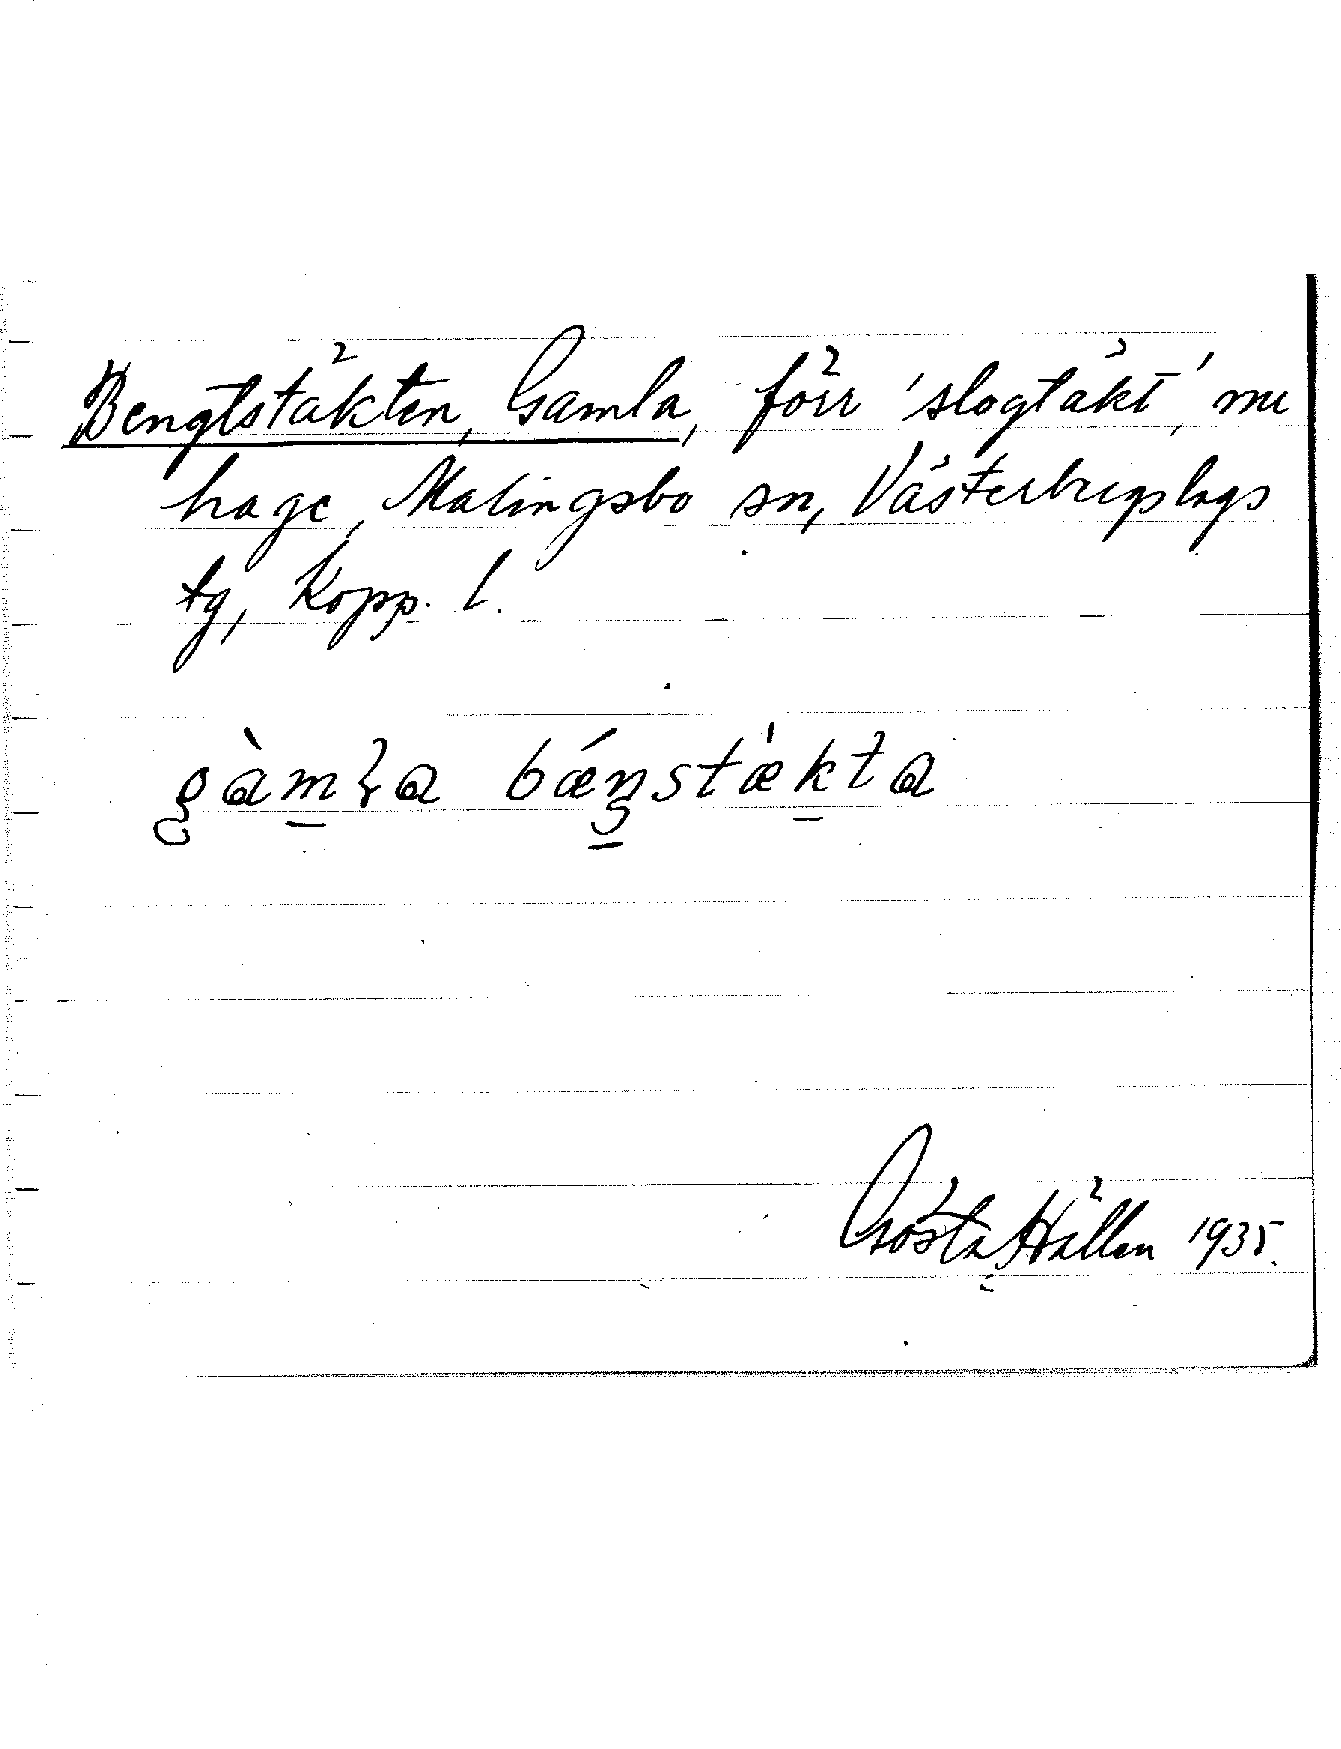 Bengtstäkten, Gamla, förr 'slogtäkt', nu
hage, Malingsbo sn, Västerbergslags
tg, Kopp. l.
gàmɽa bǽŋstækta
Gösta Hállén 1935.